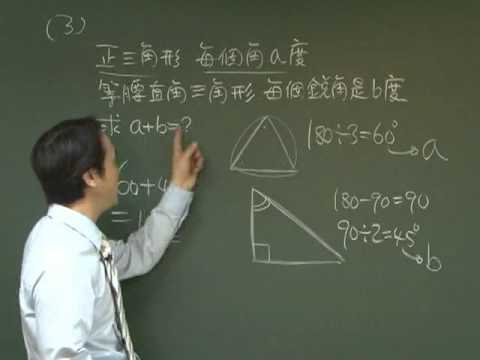 (3)
正三角形 每個角a度
等腰直角三角形 每個銳角是b度
求 a+b=?
180÷3=60°
a
60+4
=1
180-90=90
90÷2=45°
b